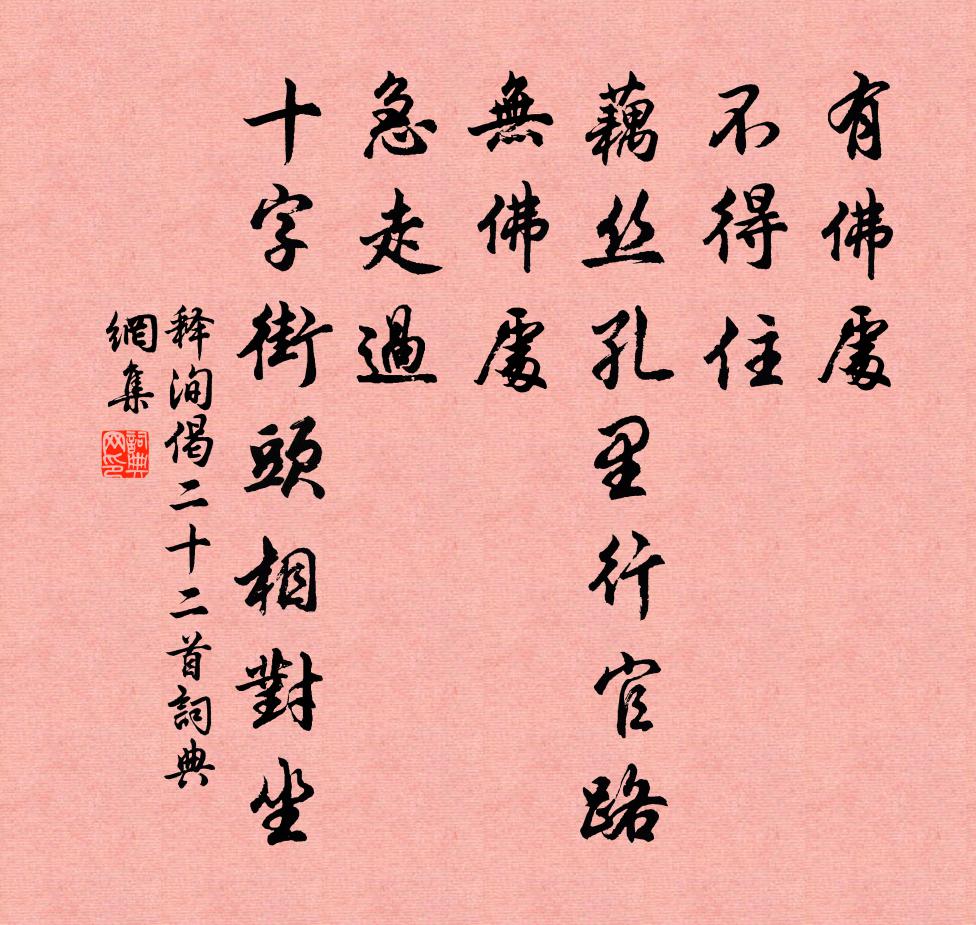 有佛處
不得住
藕丝孔里行官路
無佛處
急走過
十字街頭相對坐
释洵偈二十二首詞典
網集
詞典
网印